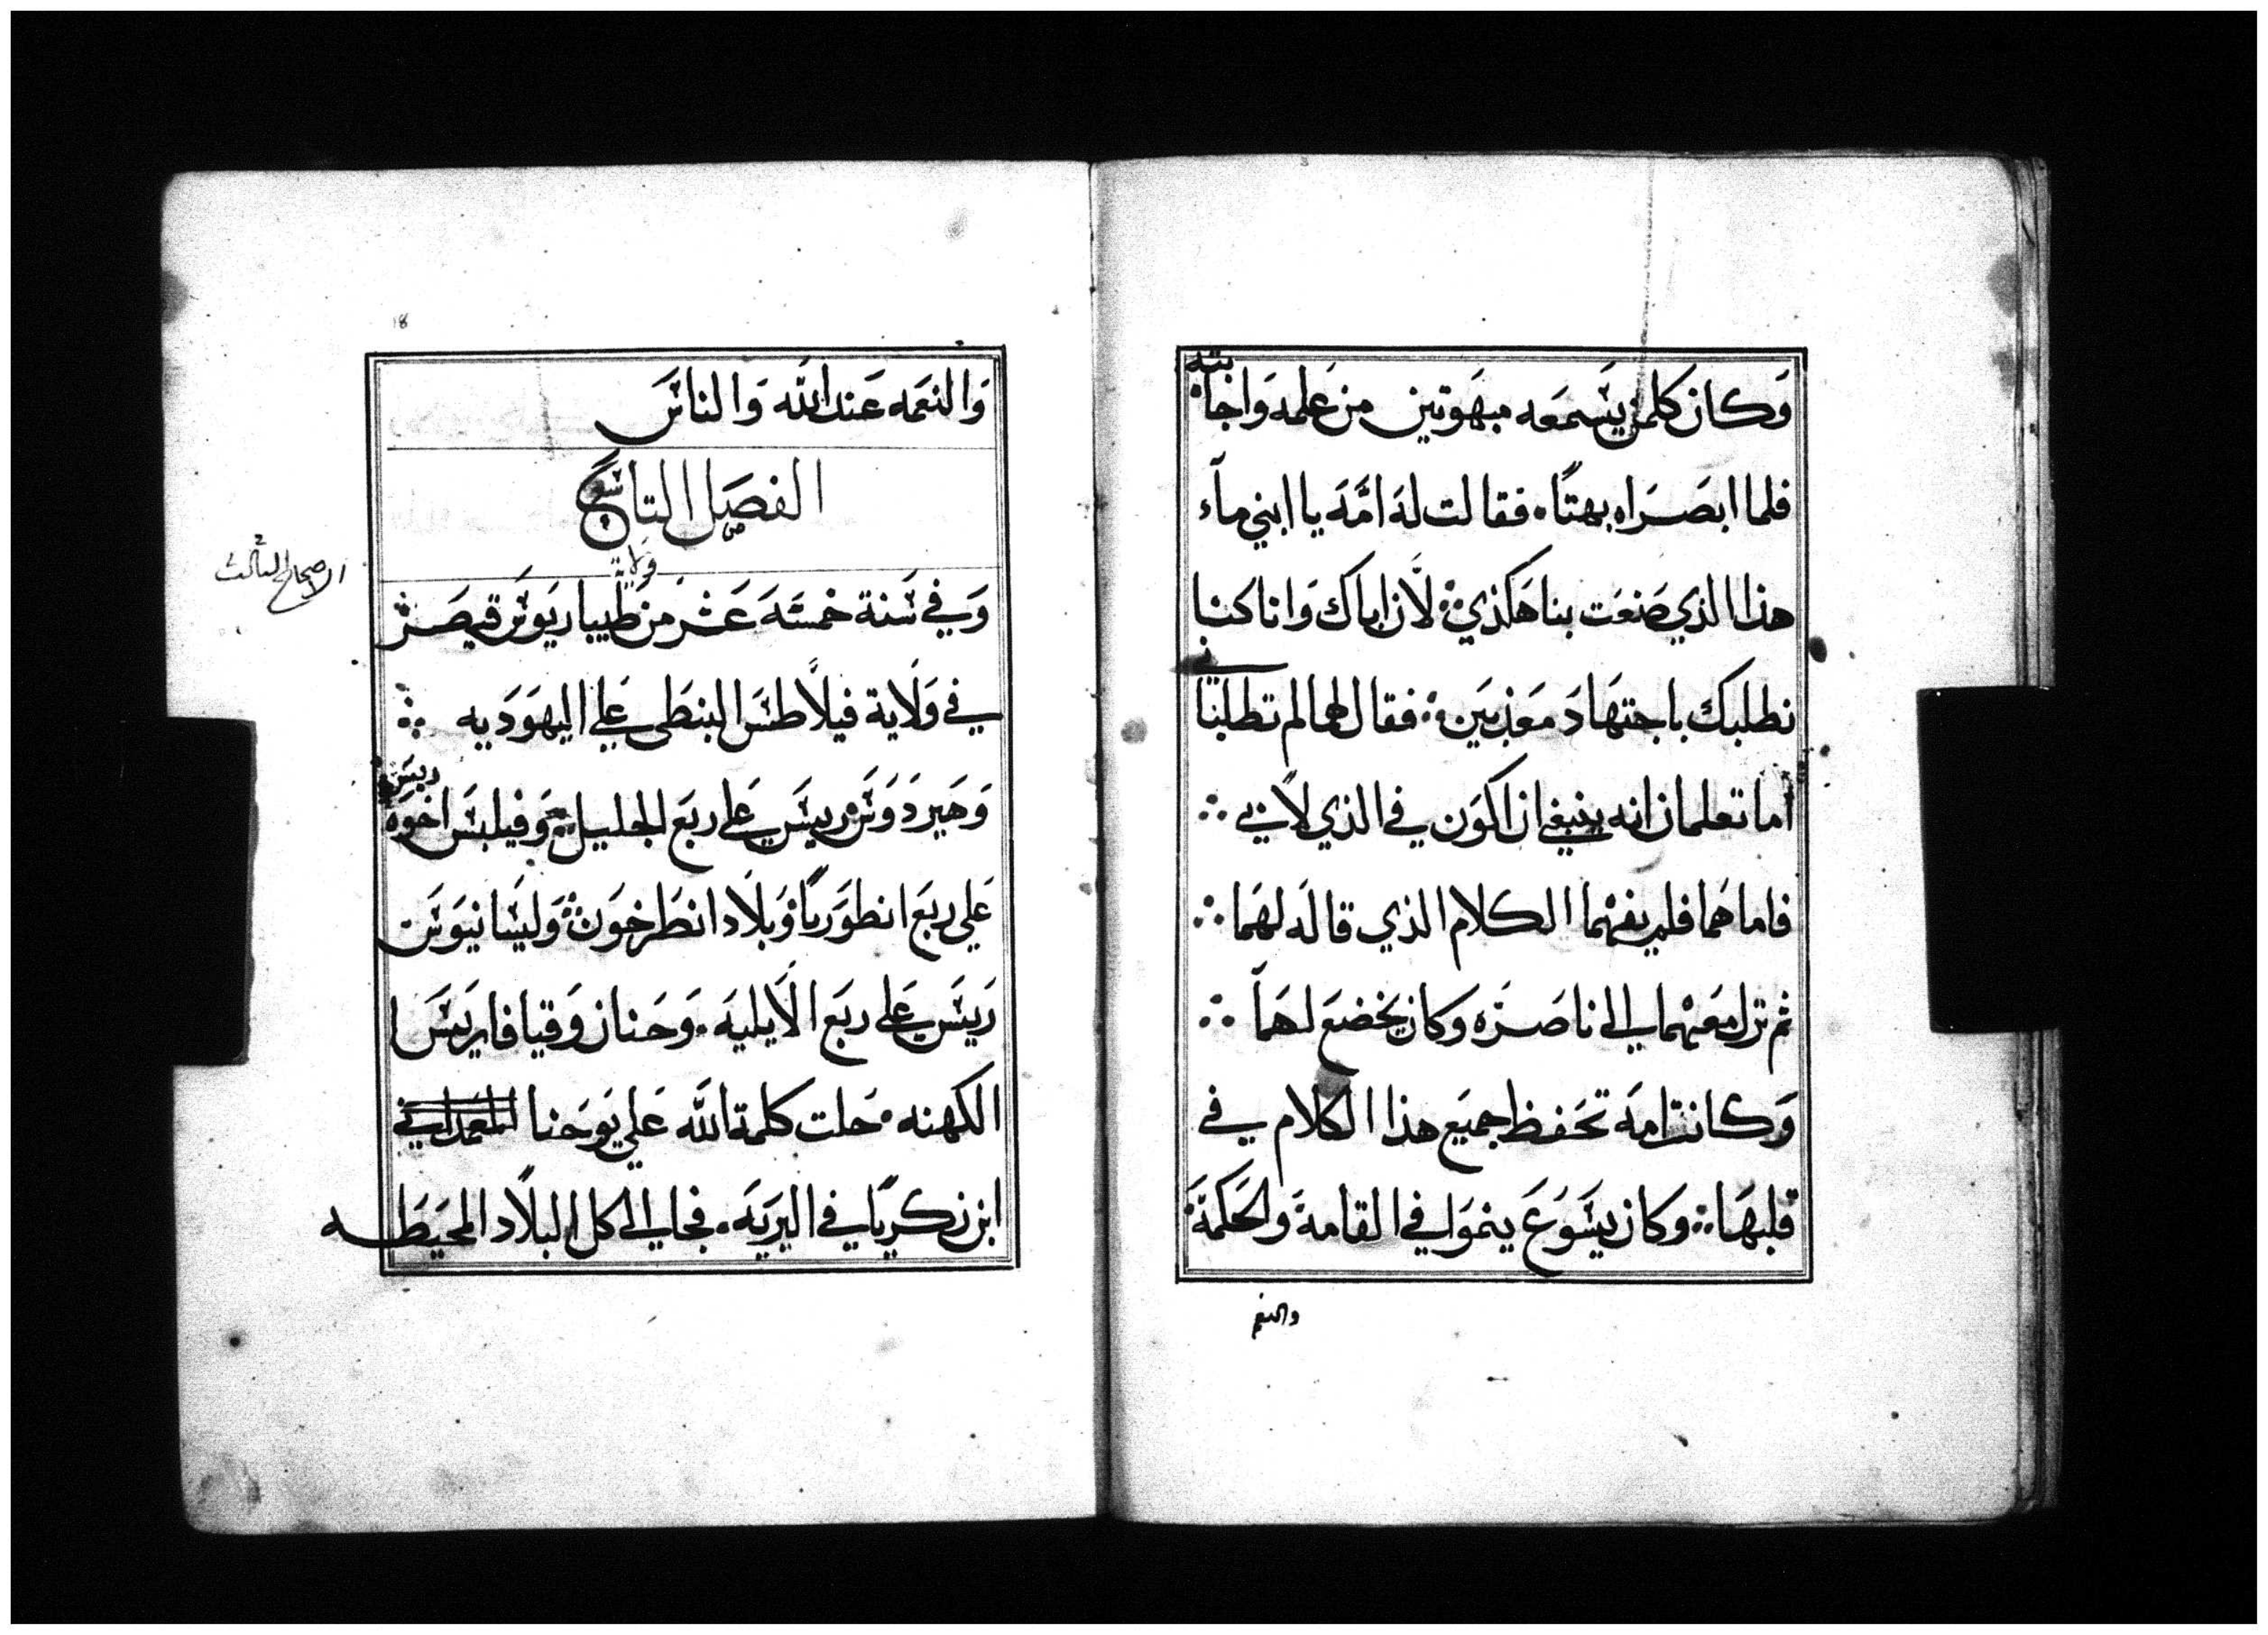 وكان كلمن يسمعه مبهوتين من علمه واجابته
فلما ابصراه بهتا. فقالت له امه يا ابني ماء
هذا الذي صنعت بنا هكذي ∴ لان اباك وانا كنا
نطلبك باجتهاد معذبين ∴ فقال لهما لم تطلباني
أما تعلمان انه ينبغي ان اكون في الذي لابي ∴
فاما هما فلم يفهما الكلام الذي قاله لهما ∴
ثم نزل معهما الى ناصره وكان يخضع لهما ∴
وكانت امه تحفظ جميع هذا الكلام في
قلبها ∴ وكان يسوع ينموا في القامة والحكمة
والنعم
18
والنعمه عند الله والناس
الفصل التاسع
الاصحاح الثالث
وفي سنة خمسه عشر من ولاية طيباريوس قيصر
في ولاية فيلاطس البنطي علي اليهوديه ∴
وهيردوس رييس علي ربع الجليل ∴ وفيلبس اخوه رييس
علي ربع انطوريا وبلاد انطرخون ∴ وليسانيوس
رييس علي ربع الايليه. وحنان وقيافا رييس
الكهنه. حلت كلمة الله علي يوحنا المعمداني
ابن زكريا في البريه. فجا الى كل البلاد المحيطه